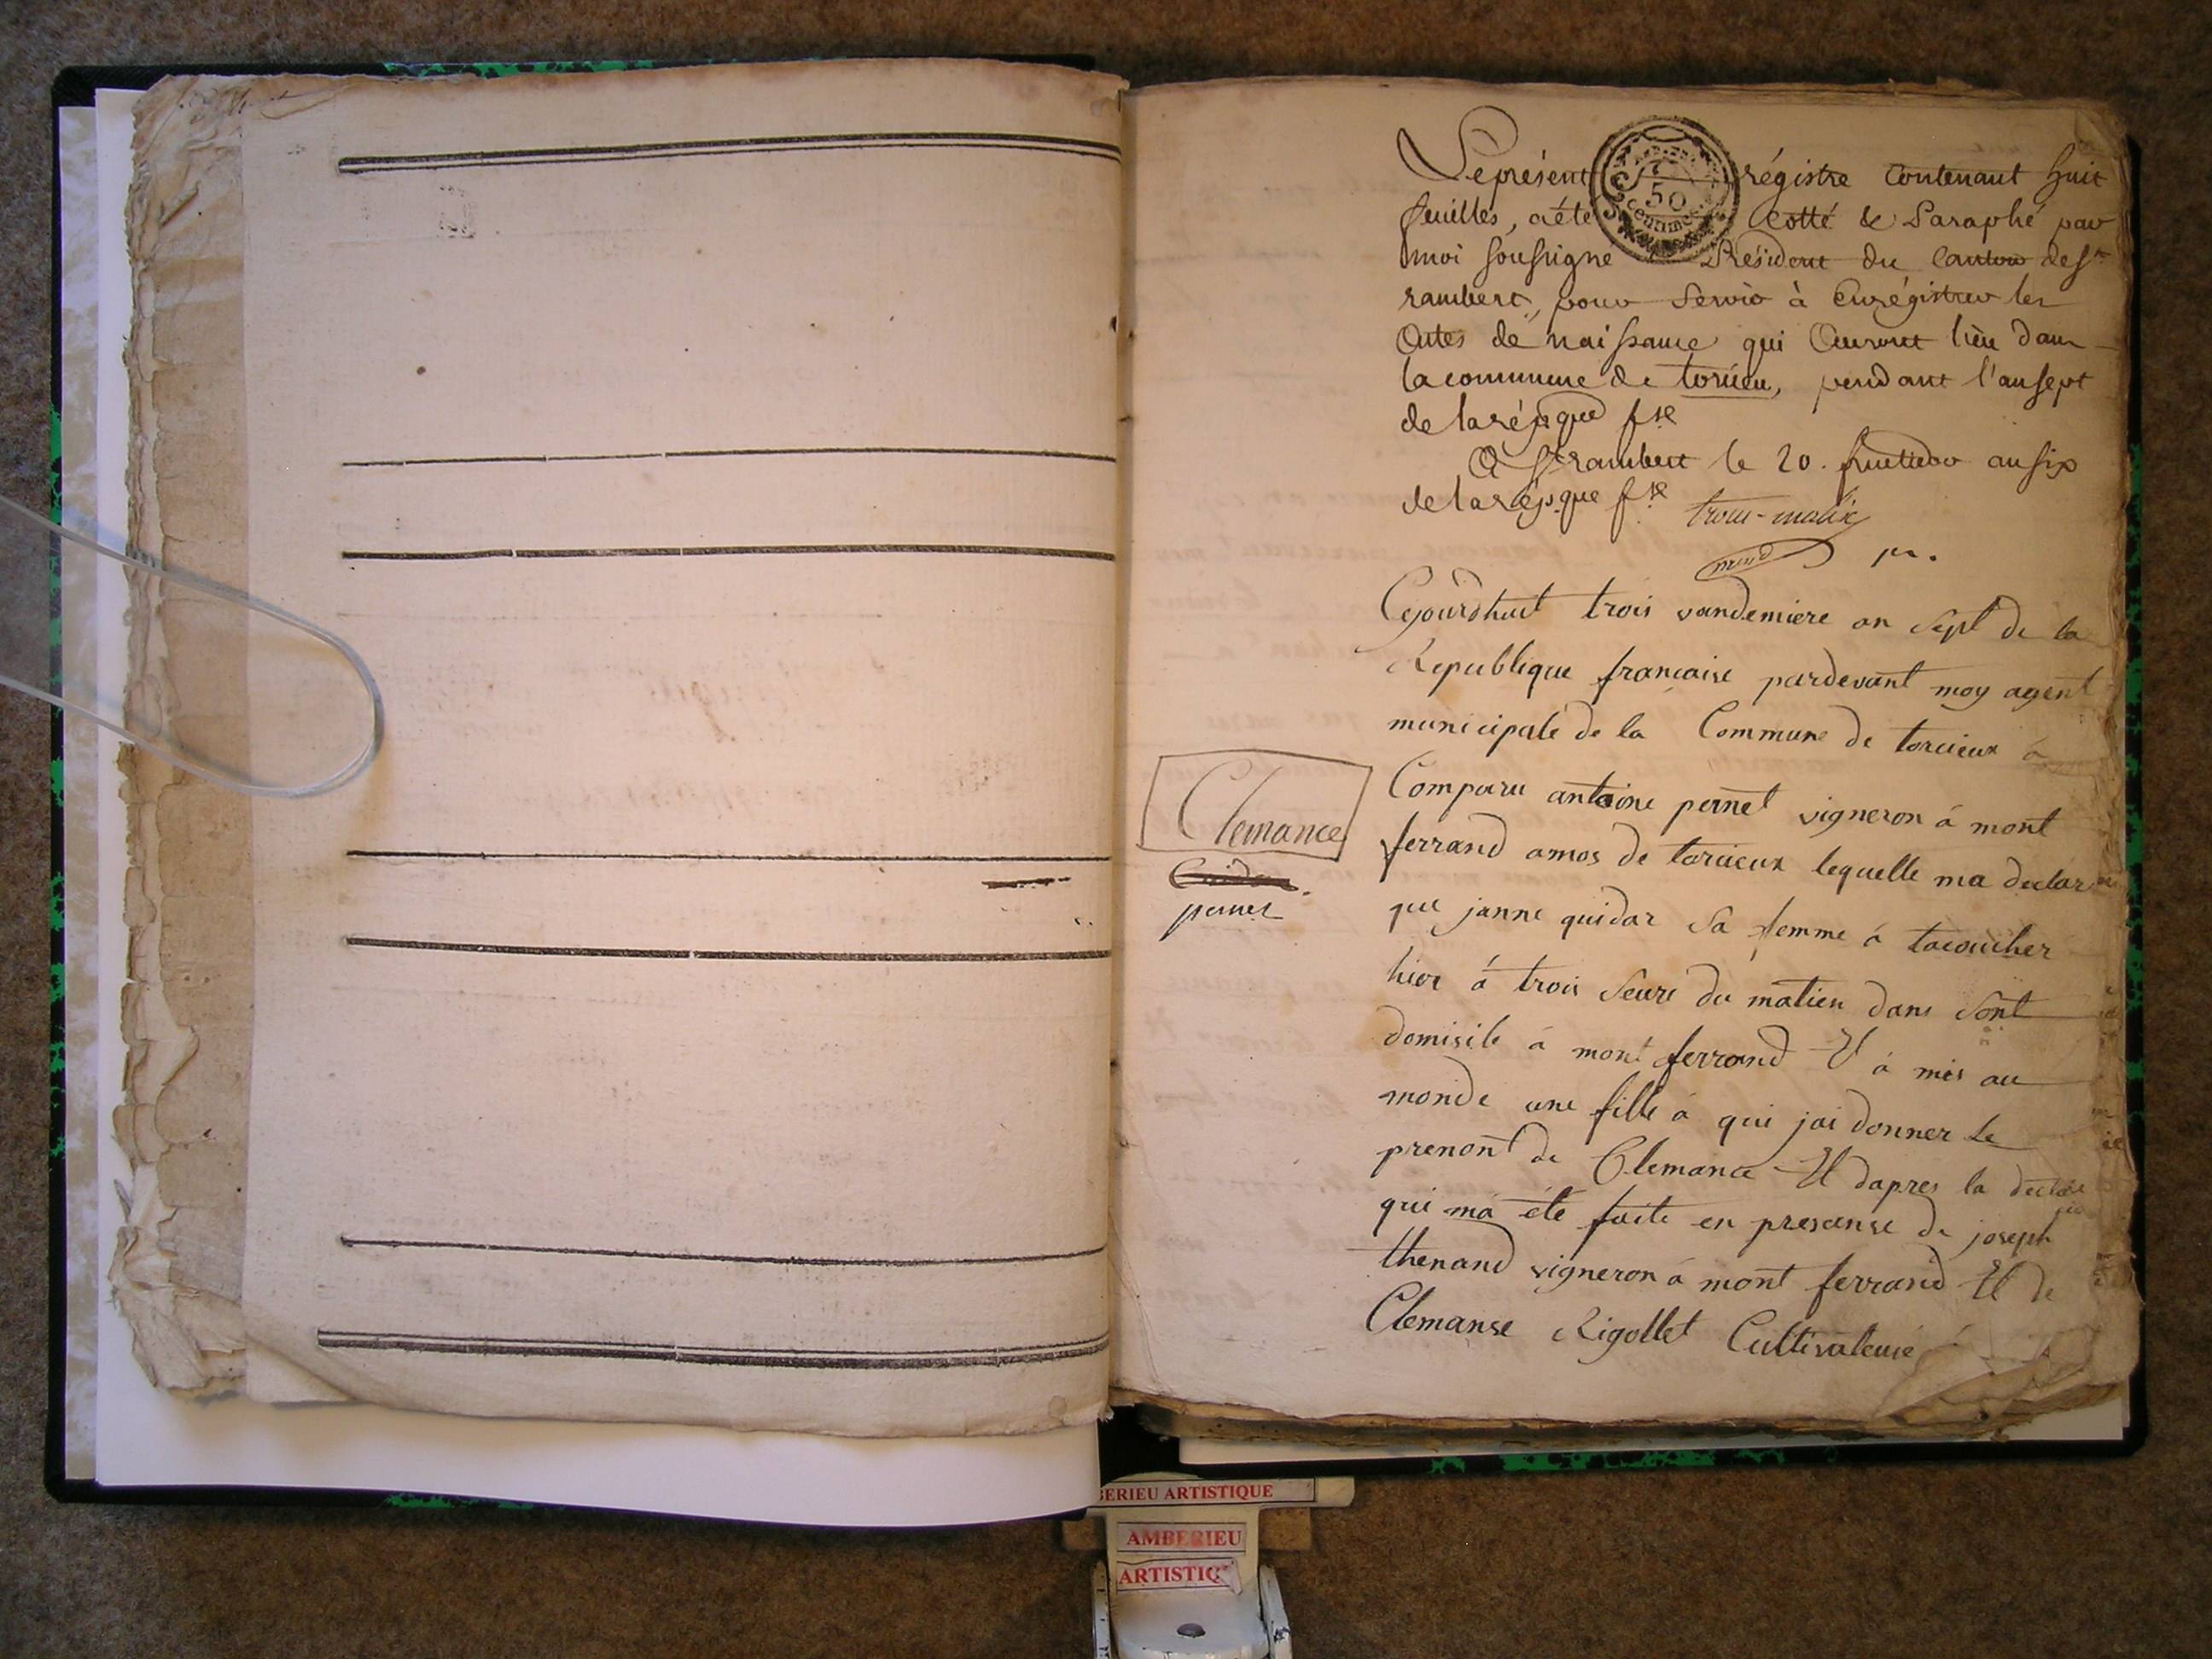 Le présent régistre contenant huit
feuilles, a été cotté & Paraphé par
moi soussigné Président du Canton de St
rambert, pour servir à Enrégistrer les
Actes de naissance qui Auront lieu dans
la commune de torcieu, pendant l'an sept
de la répque fse
A St rambert le 20. fructidor an six
de la répque fse
pt.
50
Centimes
Cejourdhuit trois vandemiere an sept de la
Republique francaise pardevant moy agent
municipale de la Commune de torcieux à
Comparu antoine pernet vigneron á mont
ferrand amos de torcieux lequelle ma declare
que janne guidar sa femme á tacoucher
hier á trois heure du matien dans sont
domisile á mont ferrand Et á mis au
monde une fille á qui jai donner le
prenont de Clemance Et dapres la
qui ma été faite en presanse de joseph
thenand vigneron á mont ferrand Et de
Clemanse Rigollet Cultivateuse á
Clemance
Guidar.
pernet
BERIEU ARTISTIQUE
AMBERIEU
ARTISTIQ